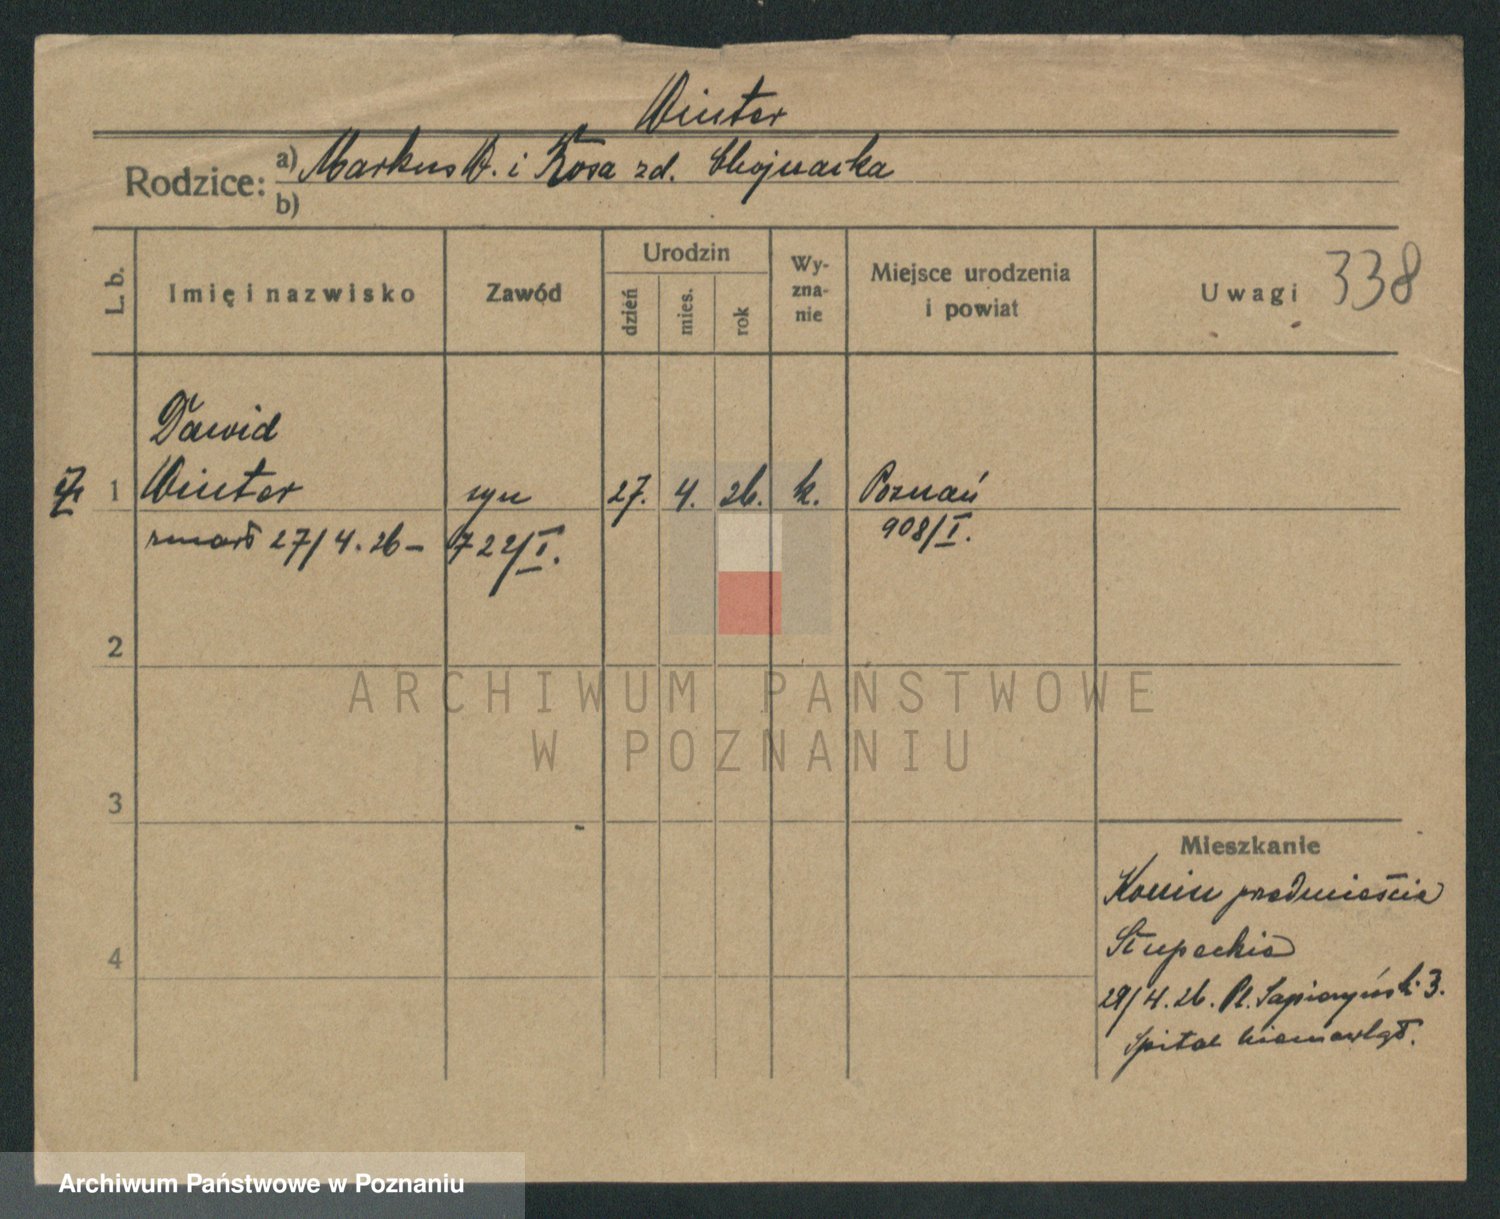 Winter
Rodzice: a) Markus W. i Rosa zd. Chojnacka
b)
L. b. Imię i nazwisko Zawód Urodzin dzień mies. rok Wyznanie Miejsce urodzenia i powiat Uwagi 338
Dawid
1 Winter syn 27. 4. 26. k. Poznań
zmarł 27/4.26 – 722/I. 908/I.
2
ARCHIWUM PAŃSTWOWE
W POZNANIU
3
Mieszkanie
Konin przedmieście
Słupeckie
4
29/4.26. Pl. Sapieżyński 3.
Spital niemowląt.
Archiwum Państwowe w Poznaniu